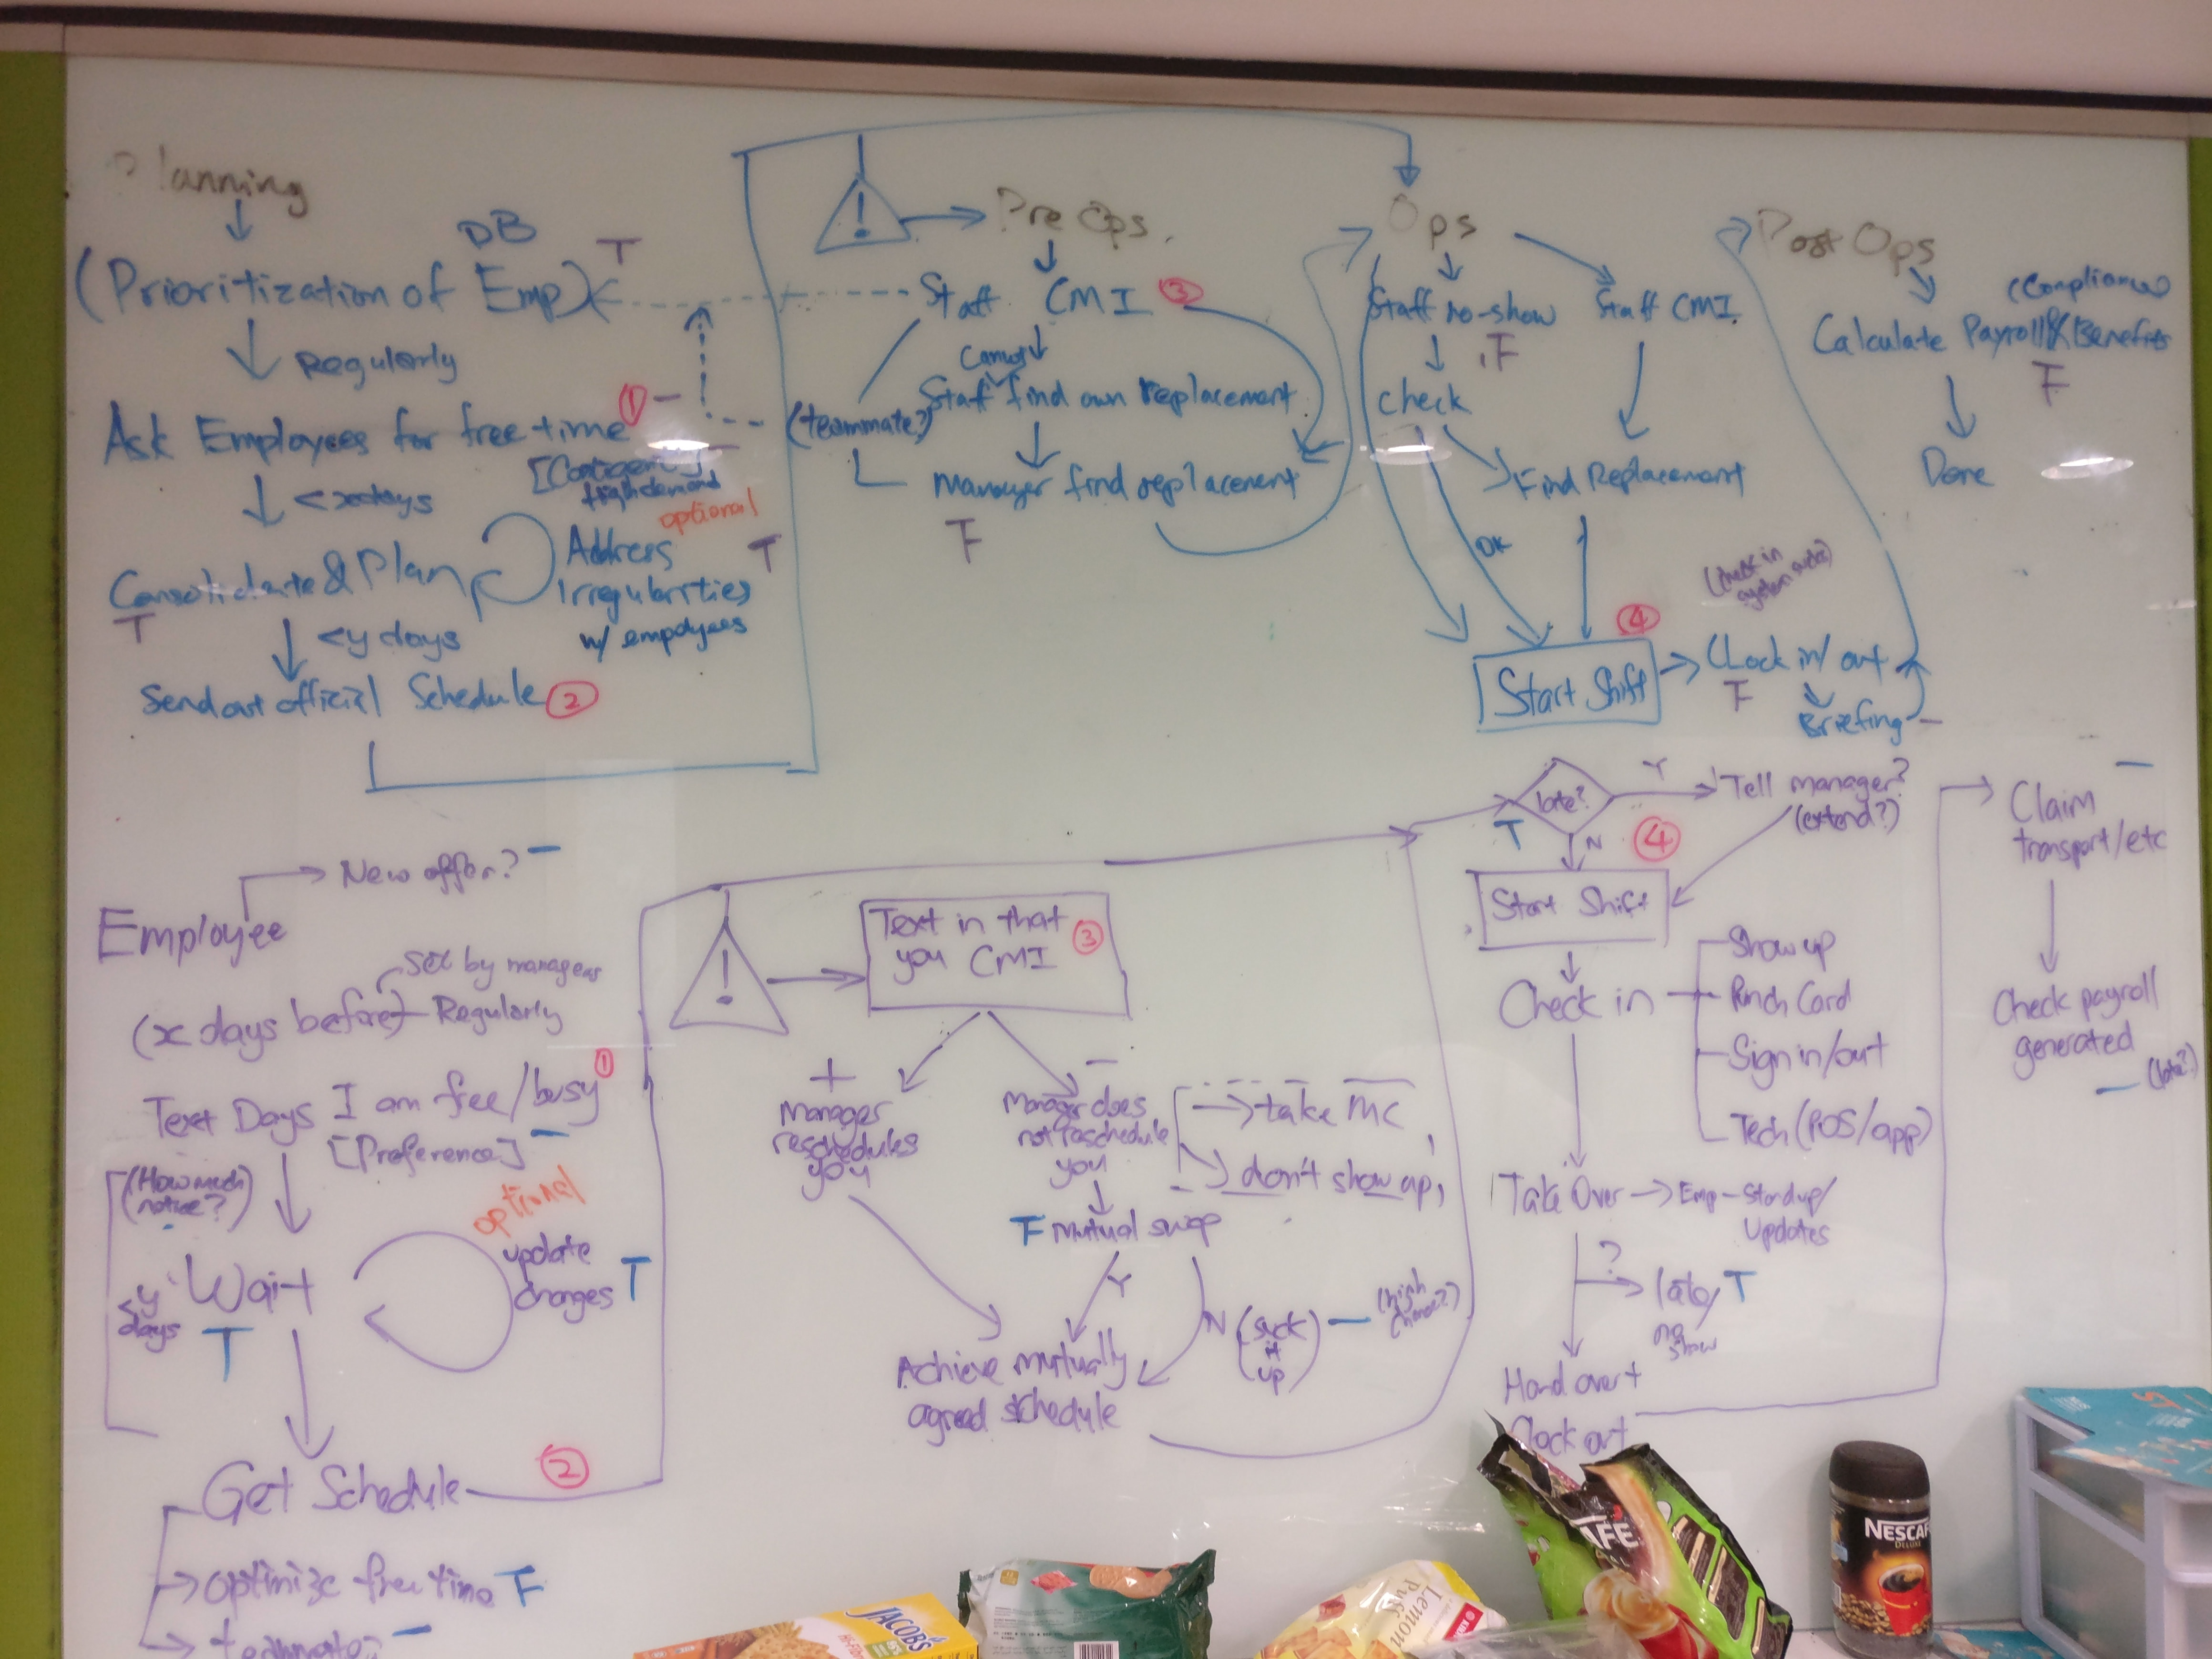 Planning
DB
T
(Prioritization of Emp)
Regularly
Ask Employees for free time ①
[
high demand
< x days
optional
Consolidate & Plan
T
Address
Irregularities
w/ empolyees
T
< y days
Send out official Schedule ②
!
Pre Ops
Staff CMI ③
Cannot
Staff find own replacement
(teammate?)
Manager find replacement
F
Ops
Staff no-show
F
Staff CMI
check
Find Replacement
OK
④
Start Shift
(check in
system
Clock in/out
F
Briefing
Post Ops
(Compliance)
Calculate Payroll & Benefits
F
Done
New offer?
Employee
Set by managers
(x days before)
Regularly
Text Days I am free/busy ①
[Preference]
(How much
notice?)
optional
update
changes T
<y
days
Wait
T
Get Schedule ②
optimize free time F
teammates
!
Text in that
you CMI ③
+
Manager
reschedules
you
-
Manager does
not reschedule
you
take MC
don't show up
F Mutual swap
Y
N (suck
it
up)
(high
Achieve mutually
agreed schedule
late?
T
Y
Tell manager?
(extend?)
N
④
Start Shift
Check in
Show up
Punch Card
Sign in/out
Tech (POS/app)
Take Over
Emp - Standup/
Updates
?
late/ T
no
show
Hand over +
Clock out
Claim
transport/etc
Check payroll
generated
(late?)
JACOB'S
Lemon
Puff
NESCAF
DELUXE
AFE
ST